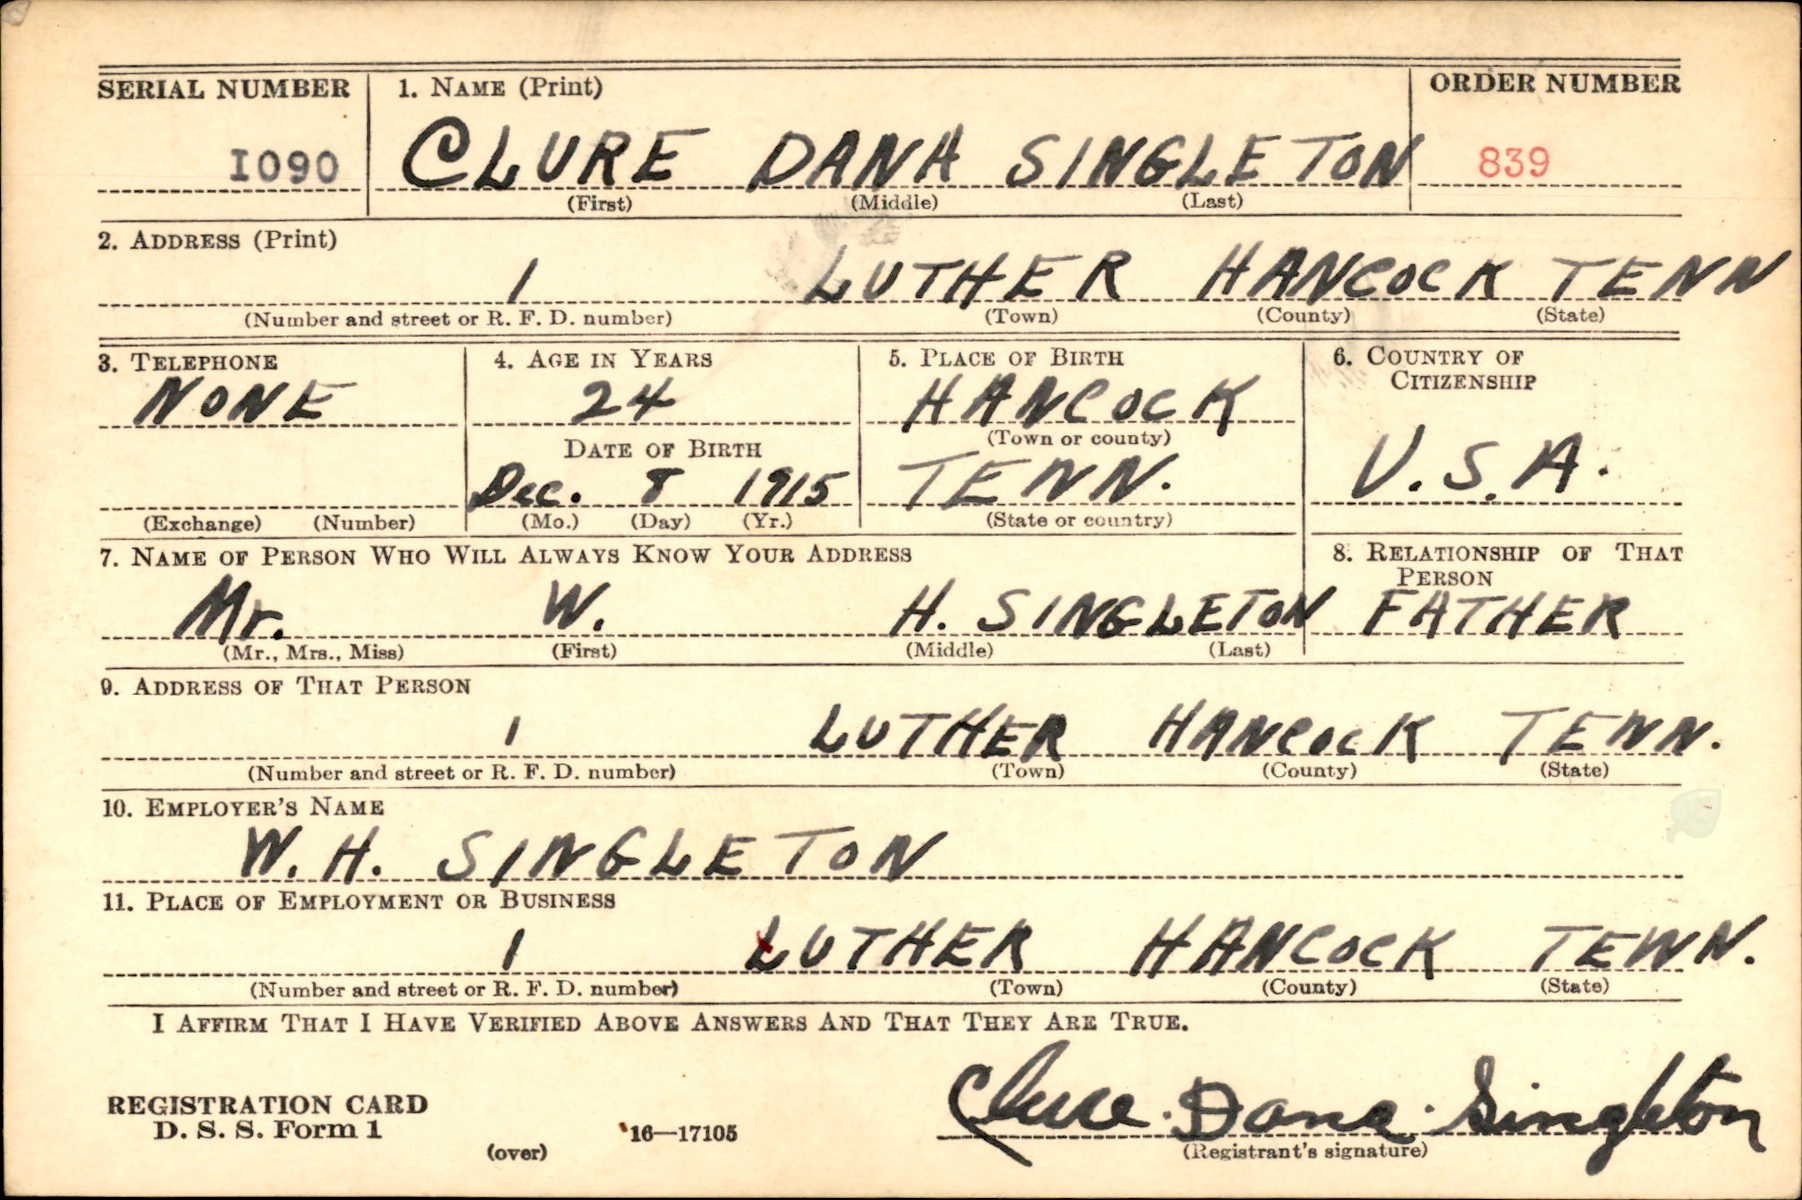 SERIAL NUMBER 1. NAME (Print) ORDER NUMBER
1090 CLURE DANA SINGLETON 839
(First) (Middle) (Last)
2. ADDRESS (Print)
1 LUTHER HANCOCK TENN
(Number and street or R. F. D. number) (Town) (County) (State)
3. TELEPHONE 4. AGE IN YEARS 5. PLACE OF BIRTH 6. COUNTRY OF
CITIZENSHIP
NONE 24 HANCOCK
(Town or county)
DATE OF BIRTH
Dec. 8 1915 TENN. U.S.A.
(Exchange) (Number) (Mo.) (Day) (Yr.) (State or country)
7. NAME OF PERSON WHO WILL ALWAYS KNOW YOUR ADDRESS 8. RELATIONSHIP OF THAT
PERSON
Mr. W. H. SINGLETON FATHER
(Mr., Mrs., Miss) (First) (Middle) (Last)
9. ADDRESS OF THAT PERSON
1 LUTHER HANCOCK TENN.
(Number and street or R. F. D. number) (Town) (County) (State)
10. EMPLOYER'S NAME
W. H. SINGLETON
11. PLACE OF EMPLOYMENT OR BUSINESS
1 LUTHER HANCOCK TENN.
(Number and street or R. F. D. number) (Town) (County) (State)
I AFFIRM THAT I HAVE VERIFIED ABOVE ANSWERS AND THAT THEY ARE TRUE.
REGISTRATION CARD
D. S. S. Form 1
(over) 16—17105
Clure Dana Singleton
(Registrant's signature)